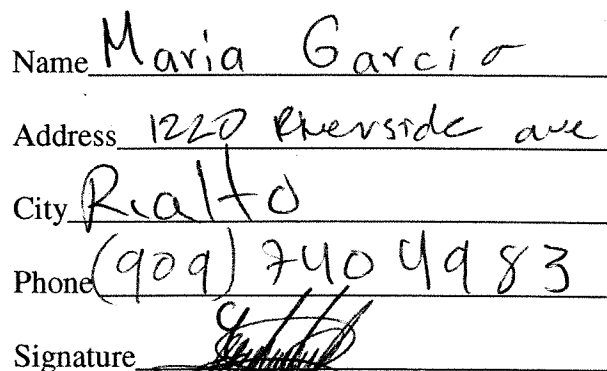 Name Maria Garcia
Address 1220 Riverside ave
City Rialto
Phone (909) 740 4983
Signature